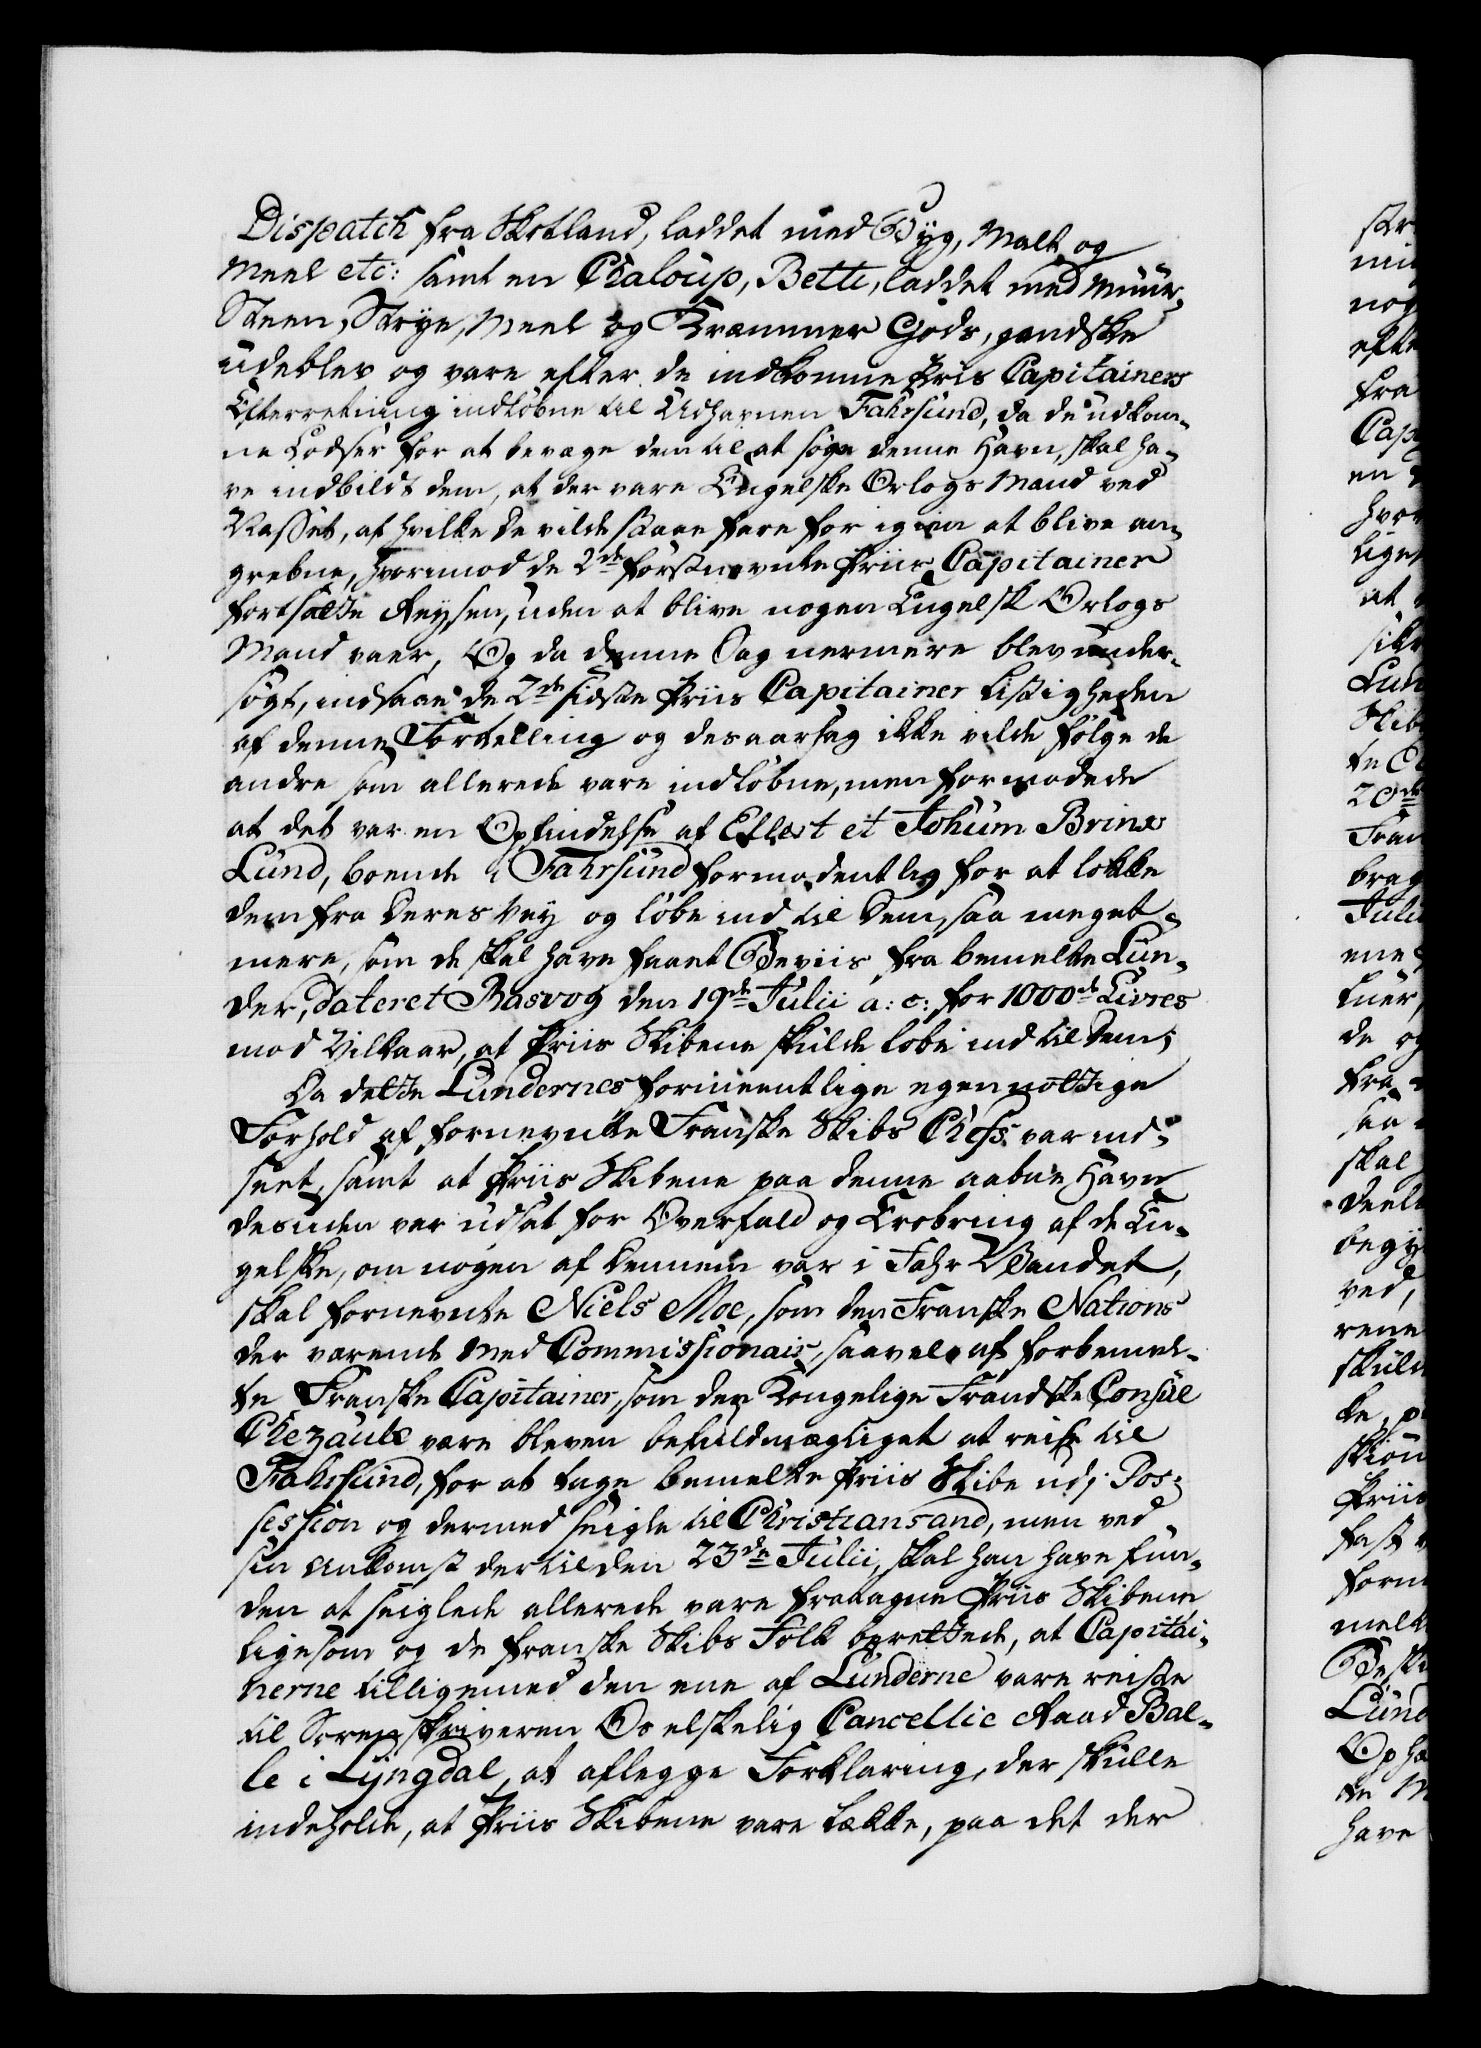 Dispatch fra Skotland, laddet med Byg, Malt og
Meel etc: samt en Chaloup, Bette, laddet med Muur-
Steen, Strye, Meel og Kræmmer Gods, gandske
udeblev og vare efter de indkomne Priis Capitainers
Efterretning indløbne til Udhavnen Fahrsund, da de udkom-
ne Lodser for at bevæge dem til at søge denne Havn, skal ha-
ve indbildt dem, at der vare Engelske Orlogs Mænd ved
Nasset, af hvilke de vilde staae fare for igien at blive an-
grebne, hvorimod de 2de førstnevnte Priis Capitainer
fortsatte Reysen, uden at blive nogen Engelsk Orlogs
Mand vaer, Og da denne Sag nermere blev under-
søgt, indsaae de 2de sidste Priis Capitainer listigheden
af denne Fortelling og desaarsag ikke vilde følge de
andre som allerede vare indløbne, men formodede
at det var en Opfindelse af Ellert et Johum Brinx
Lund, boende i Fahrsund formodentlig for at lokke
dem fra deres Vey og løbe ind til dem, saa meget
mere, som de skal have faaet Beviis fra bemelte Lun-
der, dateret Rasvog den 19de Julii a: c: for 1000de Livres
mod Vilkaar, at Priis Skibene skulde løbe ind til dem;
Da dette Lundernes formeentlige egennøttige
Forhold af fornevnte Franske Skibs Chefs var ind-
seet, samt at Priis Skibene paa denne aabne Havn
desuden var udsat for Overfald og Erobring af de En-
gelske, om nogen af dennem var i Fahr Vandet,
skal fornevnte Niels Moe, som den Franske Nations
der værende Med Commissionair, saavel af forbemel-
te Franske Capitainer, som den Kongelige Frandske Consul
Chezaulx være bleven befuldmægtiget at reise til
Fahrsund, for at tage bemelte Priis Skibe udj Pos-
session og dermed seigle til Christiansand, men ved
sin Ankomst dertil den 23de Julii, skal han have fun-
den at seiglene allerede vare fratagne Priis Skibene
ligesom og de franske Skibs Folk berettede, at Capitai-
nerne tilligemed den ene af Lunderne vare reiste
til Sorenskriveren Os elskelig Cancellie Raad Bal-
le i Lyngdal, at aflegge Forklaring, der skulle
indeholde, at Priis Skibene vare lække, paa det der